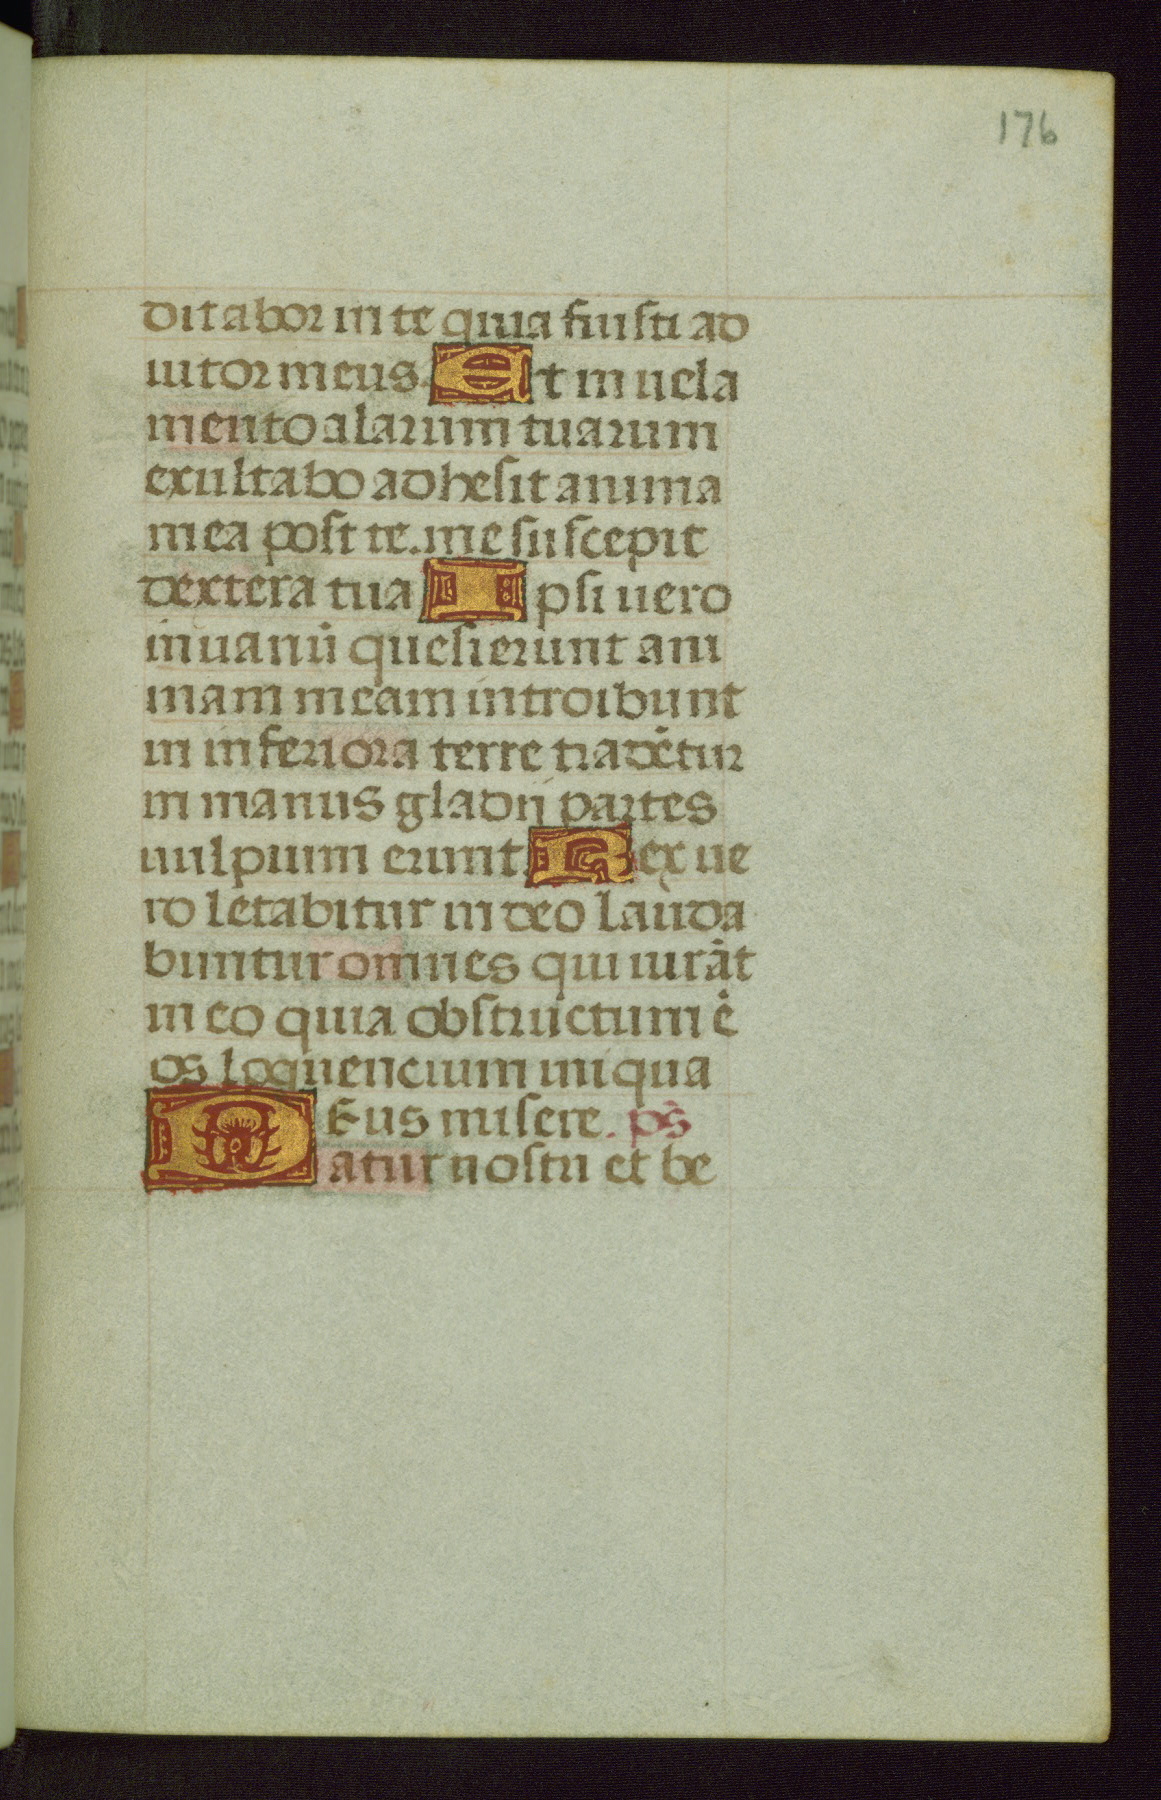 176
ditabor in te quia fuisti ad
iutor meus. Et in uela
mento alarum tuarum
exultabo adhesit anima
mea post te. me suscepit
dextera tua Ipsi uero
in uanū quesierunt ani
mam meam introibunt
in inferiora terre tradētur
in manus gladii partes
uulpium erunt. Rex ue
ro letabitur in deo lauda
buntur omnes qui iurāt
in eo quia obstructum ē
os loquencium iniqua
DEus misere. ps̄
atur nostri et be